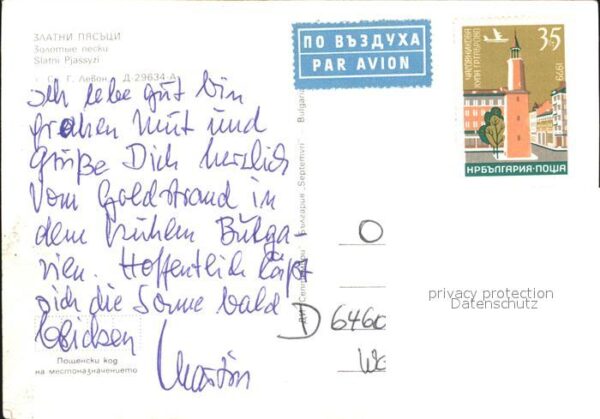 ЗЛАТНИ ПЯСЪЦИ
Золотые пески
Slatni Pjassyzi
Г. Левон. Д-29634-А
ПО ВЪЗДУХА
PAR AVION
35
1979
НР БЪЛГАРИЯ·ПОЩА
Ich lebe gut bin
frohen Mut und
grüße Dich herzlich
vom Goldstrand in
dem kühlen Bulga-
rien. Hoffentlich läßt
sich die Sonne bald
blicken
Martin
България "Septemvri" Bulgaria
D 6460
privacy protection
Datenschutz
Пощенски код
на местоназначението